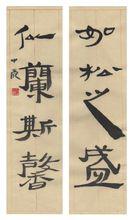 如松之盛
似蘭斯馨